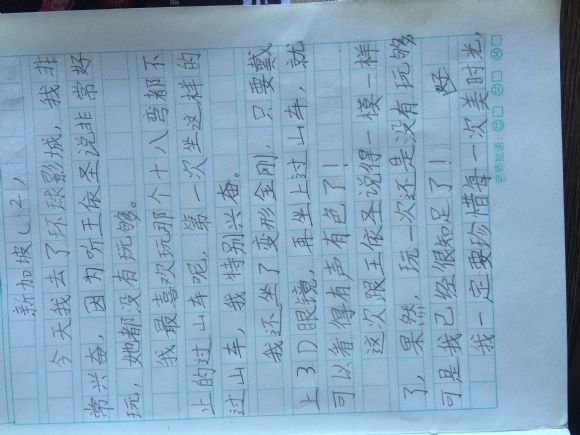 新加坡(2)
今天我去了环球影城，我非
常兴奋，因为听王依圣说非常好
玩，她都没有玩够。
我最喜欢玩那个十八弯都不
止的过山车呢，第一次坐这样的
过山车，我特别兴奋。
我还坐了变形金刚，只要戴
上3D眼镜，再坐上过山车，就
可以看得有声有色了！
这次跟王依圣说得一模一样
了，果然，玩一次还是没有玩够
可是我已经很知足了！
好
我一定要珍惜每一次美时光，
老师批语：